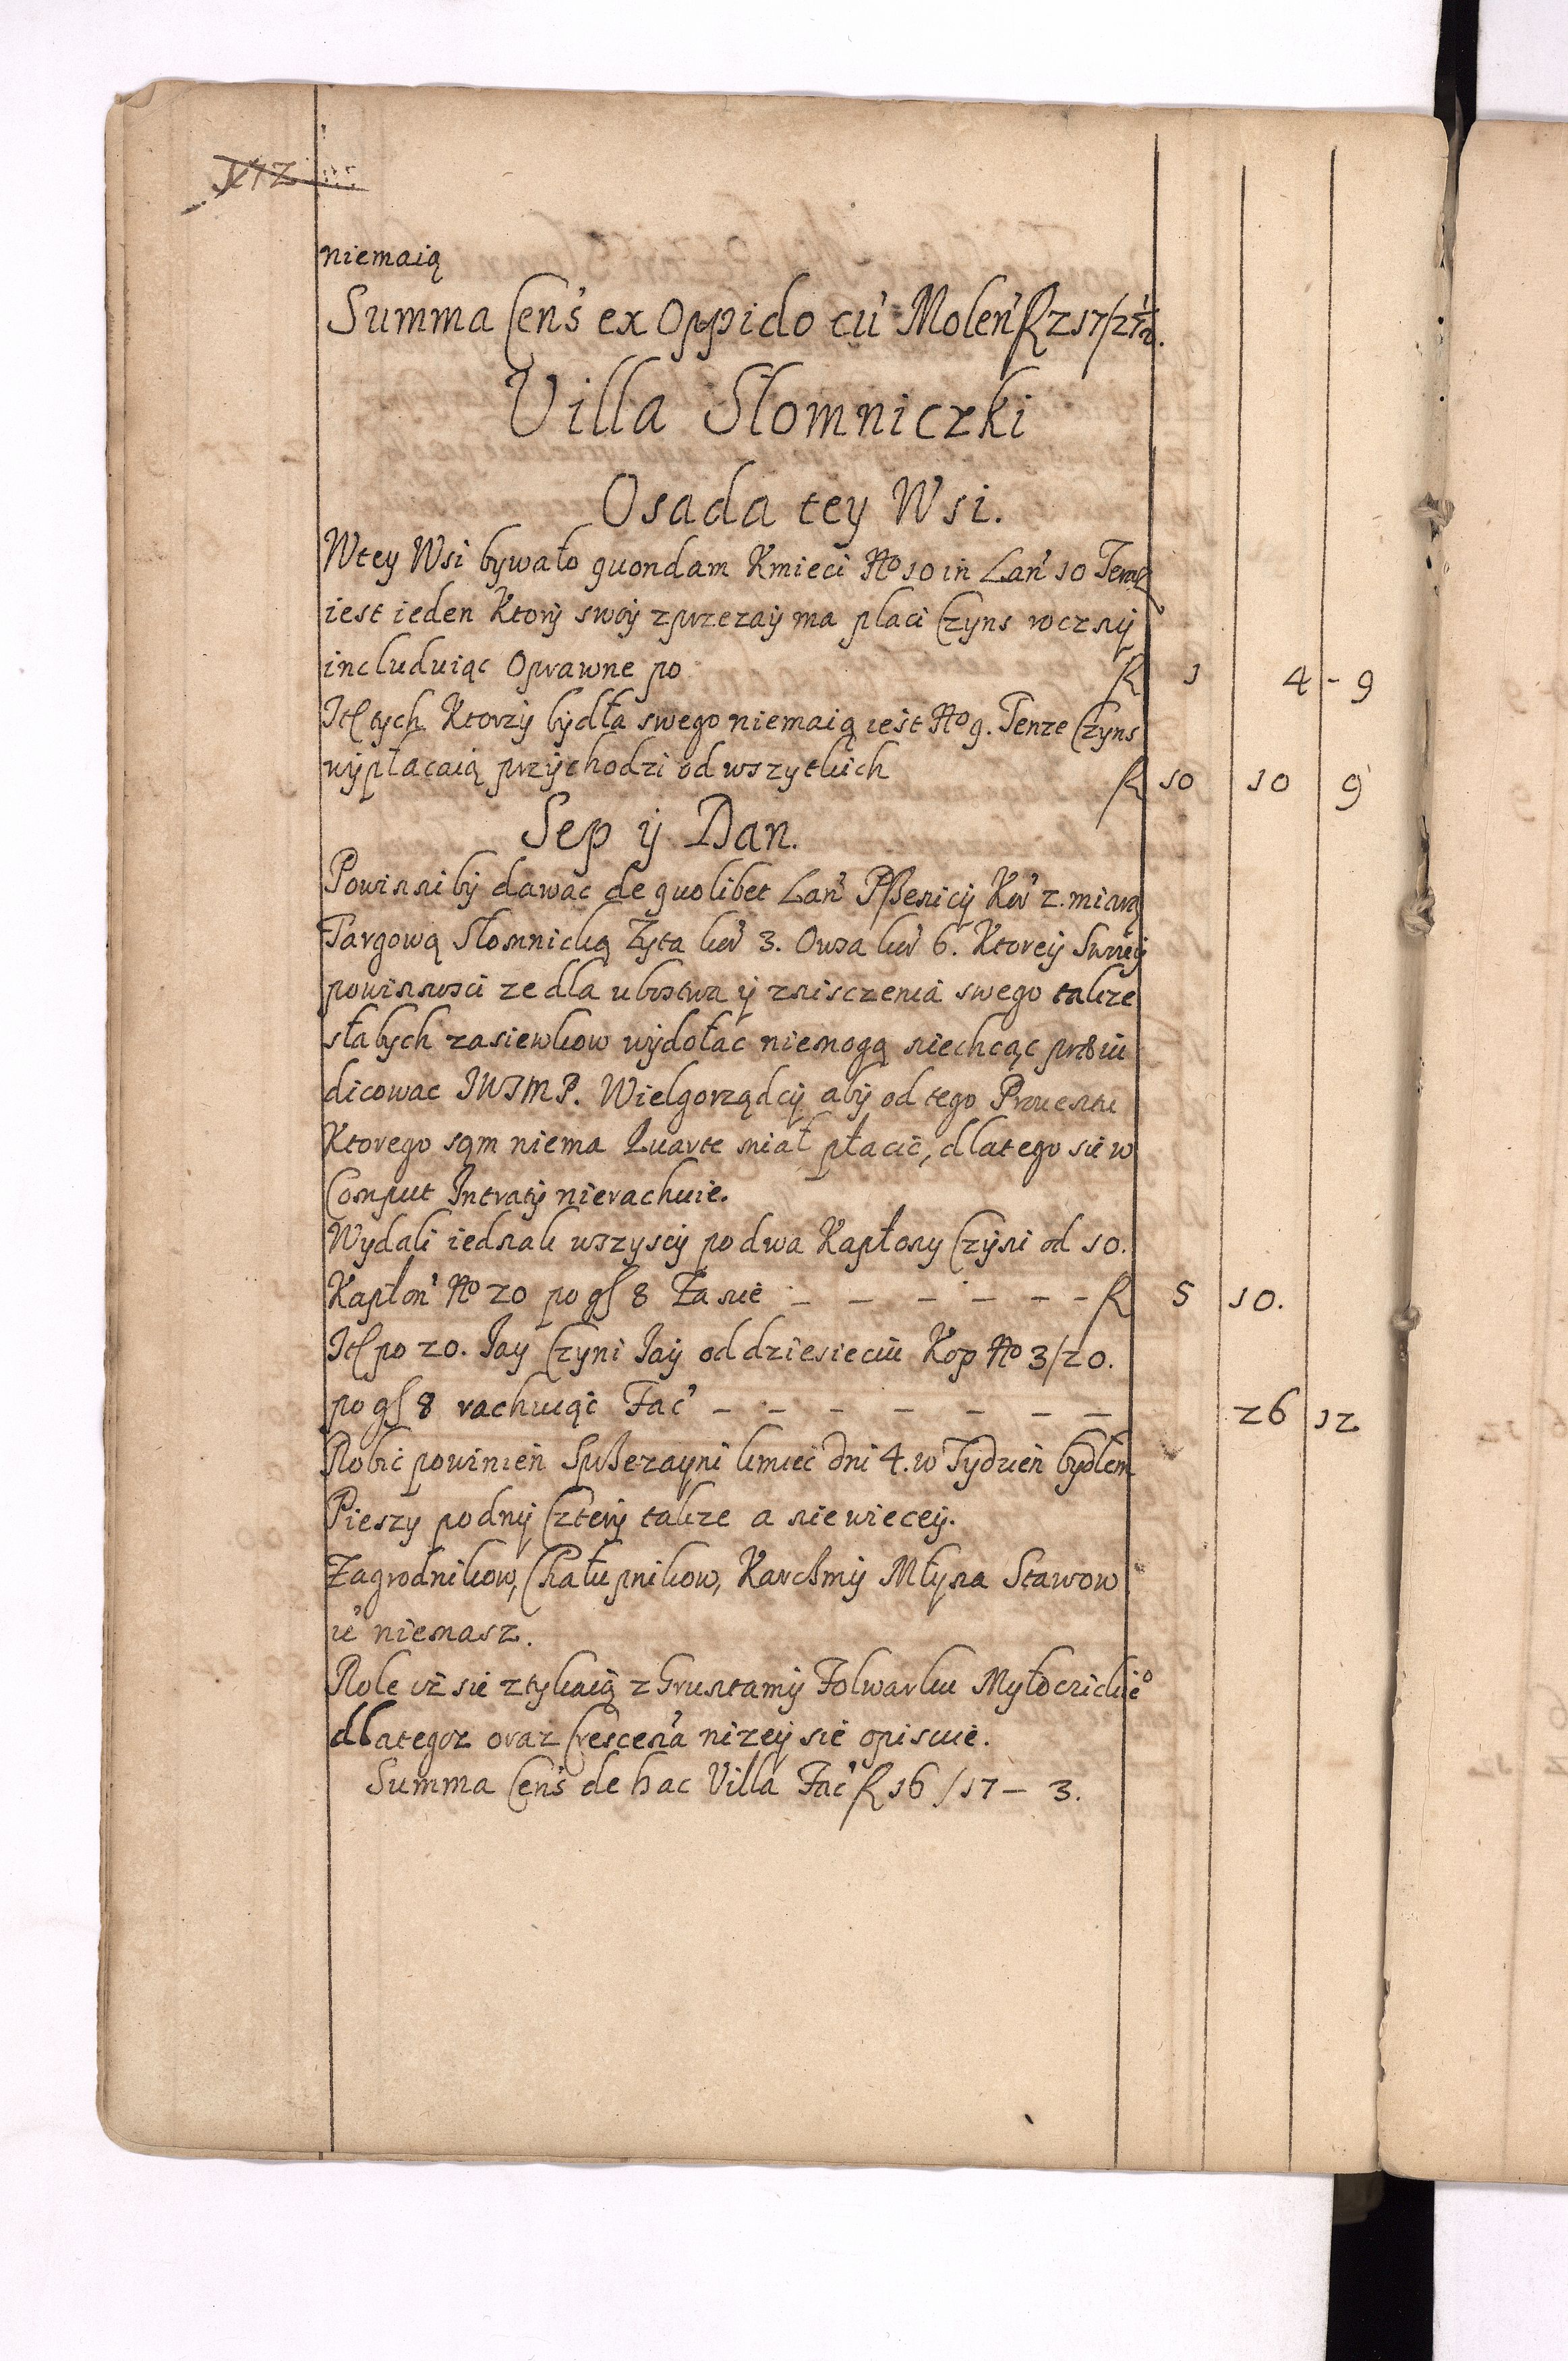 niemaią
Summa Cens' ex Oppido cu' Molen' R 217/27½.
Villa Słomniczki
Osada tey Wsi.
Wtey Wsi bywało quondam Kmieci No 10 in Lan' 10 Teraz
iest ieden Ktory swoy zprzezay ma płaci Czyns roczny
includuiąc Oprawne po R 1 4 - 9
Itt tych Ktorzy bydła swego niemaią iest No 9. Tenze Czyns
wypłacaią przychodzi od wszytkich R 10 10 9
Sep y Dan.
Powinniby dawac de quolibet Lan' Pszenicy Kor' 2. miarą
Targową Słomnicką Zyta kor' 3. Owsa kor' 6. Ktorey Swoiey
powinnosci ze dla ubostwa y znisczenia swego takze
słabych zasiewkow wydołac niemogą niechcąc przeiu
dicowac JWJMP. Wielgorządcy aby od tego Prouentu
Ktorego sąm niema Kwarte miał płacić, dlatego sie w
Comput Intraty nierachuie.
Wydali iednak wszyscy po dwa Kapłony Czyni od 10.
Kapłon' No 20 po gł 8 Za nie - - - - - - R 5 10.
Itt po 20. Jay Czyni Jay od dziesieciu Kop No 3/20.
po gł 8 rachuiąc Fac' - - - - - - - 26 12
Robic powinien Spszezayni kmiec dni 4. w Tydzien bydłem
Pieszy po dny Cztery takze a nie wiecey.
Zagrodnikow, Chałupnikow, Karczmy Młyna Stawow
ie' niemasz.
Role iż sie ztykaią z Gruntamy Folwarku Myłoczickieo
dlategoz oraz Crescen'a nizey sie opisuie.
Summa Cens' de hac Villa Fac' R 16/17 - 3.